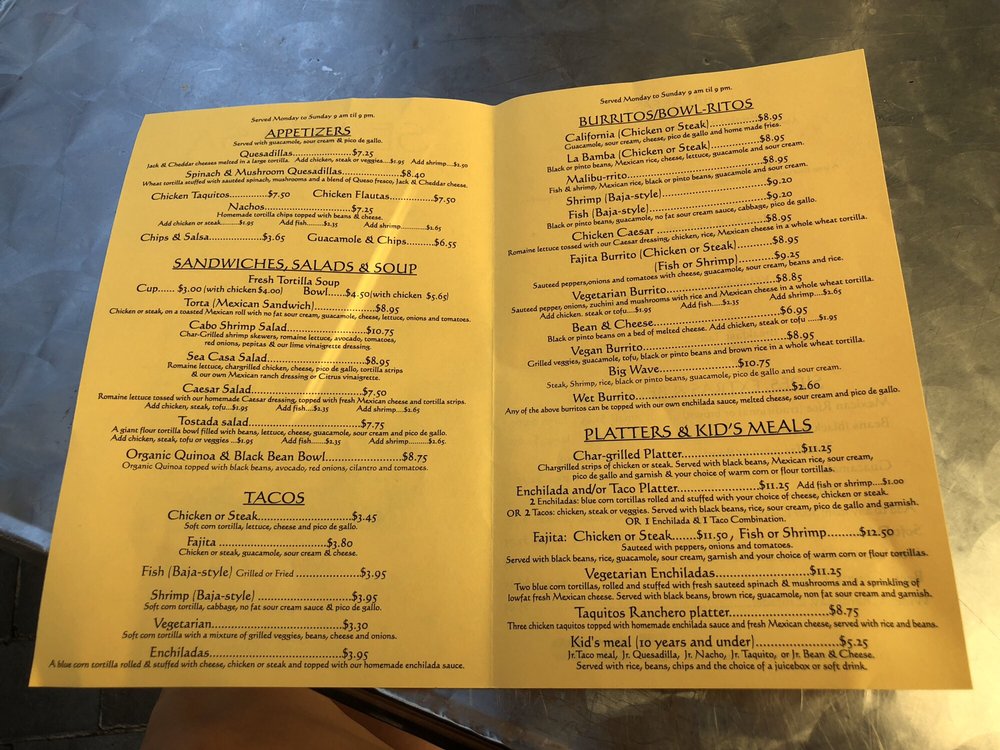 Served Monday to Sunday 9 am til 9 pm.
APPETIZERS
Served with guacamole, sour cream & pico de gallo.
Quesadillas.....................$7.25
Jack & Cheddar cheeses melted in a large tortilla. Add chicken, steak or veggies....$1.95 Add shrimp....$1.50
Spinach & Mushroom Quesadillas.....................$8.40
Wheat tortilla stuffed with sautéed spinach, mushrooms and a blend of Queso fresco, Jack & Cheddar cheese.
Chicken Taquitos..........$7.50 Chicken Flautas...........$7.50
Nachos.....................$7.25
Homemade tortilla chips topped with beans & cheese.
Add chicken or steak........$1.95 Add fish........$2.35 Add shrimp............$2.65
Chips & Salsa..............$3.65 Guacamole & Chips............$6.55
SANDWICHES, SALADS & SOUP
Fresh Tortilla Soup
Cup...... $3.00 (with chicken $4.00) Bowl.....$4.50(with chicken 5.65)
Torta (Mexican Sandwich)...............$8.95
Chicken or steak, on a toasted Mexican roll with no fat sour cream, guacamole, cheese, lettuce, onions and tomatoes.
Cabo Shrimp Salad....................$10.75
Char-Grilled shrimp skewers, romaine lettuce, avocado, tomatoes,
red onions, pepitas & our lime vinaigrette dressing.
Sea Casa Salad.........................$8.95
Romaine lettuce, chargrilled chicken, cheese, pico de gallo, tortilla strips
& our own Mexican ranch dressing or Citrus vinaigrette.
Caesar Salad.........................$7.50
Romaine lettuce tossed with our homemade Caesar dressing, topped with fresh Mexican cheese and tortilla strips.
Add chicken, steak, tofu....$1.95 Add fish....$2.35 Add shrimp....$2.65
Tostada salad...................$7.75
A giant flour tortilla bowl filled with beans, lettuce, cheese, guacamole, sour cream and pico de gallo.
Add chicken, steak, tofu or veggies ...$1.95 Add fish.......$2.35 Add shrimp.........$2.65.
Organic Quinoa & Black Bean Bowl....................$8.75
Organic Quinoa topped with black beans, avocado, red onions, cilantro and tomatoes.
TACOS
Chicken or Steak........................$3.45
Soft corn tortilla, lettuce, cheese and pico de gallo.
Fajita ............................$3.80
Chicken or steak, guacamole, sour cream & cheese.
Fish (Baja-style) Grilled or Fried ................$3.95
Shrimp (Baja-style) .........................$3.95
Soft corn tortilla, cabbage, no fat sour cream sauce & pico de gallo.
Vegetarian....................$3.30
Soft corn tortilla with a mixture of grilled veggies, beans, cheese and onions.
Enchiladas......................$3.95
A blue corn tortilla rolled & stuffed with cheese, chicken or steak and topped with our homemade enchilada sauce.
Served Monday to Sunday 9 am til 9 pm.
BURRITOS/BOWL-RITOS
California (Chicken or Steak).............$8.95
Guacamole, sour cream, cheese, pico de gallo and home made fries.
La Bamba (Chicken or Steak)............$8.95
Black or pinto beans, Mexican rice, cheese, lettuce, guacamole and sour cream.
Malibu-rrito.............................$8.95
Fish & shrimp, Mexican rice, black or pinto beans, guacamole and sour cream.
Shrimp (Baja-style)......................$9.20
Fish (Baja-style)........................$9.20
Black or pinto beans, guacamole, no fat sour cream sauce, cabbage, pico de gallo.
Chicken Caesar ......................$8.95
Romaine lettuce tossed with our Caesar dressing, chicken, rice, Mexican cheese in a whole wheat tortilla.
Fajita Burrito (Chicken or Steak)...........$8.95
(Fish or Shrimp)............$9.25
Sauteed peppers,onions and tomatoes with cheese, guacamole, sour cream, beans and rice.
Vegetarian Burrito....................$8.85
Sauteed pepper, onions, zuchini and mushrooms with rice and Mexican cheese in a whole wheat tortilla.
Add chicken. steak or tofu....$1.95 Add fish....$2.35 Add shrimp....$2.65
Bean & Cheese.......................$6.95
Black or pinto beans on a bed of melted cheese. Add chicken, steak or tofu .....$1.95
Vegan Burrito......................$8.95
Grilled veggies, guacamole, tofu, black or pinto beans and brown rice in a whole wheat tortilla.
Big Wave................$10.75
Steak, Shrimp, rice, black or pinto beans, guacamole, pico de gallo and sour cream.
Wet Burrito.................$2.60
Any of the above burritos can be topped with our own enchilada sauce, melted cheese, sour cream and pico de gallo.
PLATTERS & KID'S MEALS
Char-grilled Platter........................$11.25
Chargrilled strips of chicken or steak. Served with black beans, Mexican rice, sour cream,
pico de gallo and garnish & your choice of warm corn or flour tortillas.
Enchilada and/or Taco Platter................$11.25 Add fish or shrimp....$1.00
2 Enchiladas: blue corn tortillas rolled and stuffed with your choice of cheese, chicken or steak.
OR 2 Tacos: chicken, steak or veggies. Served with black beans, rice, sour cream, pico de gallo and garnish.
OR 1 Enchilada & 1 Taco Combination.
Fajita: Chicken or Steak.......$11.50, Fish or Shrimp.........$12.50
Sauteed with peppers, onions and tomatoes.
Served with black beans, rice, guacamole, sour cream, garnish and your choice of warm corn or flour tortillas.
Vegetarian Enchiladas...................$11.25
Two blue corn tortillas, rolled and stuffed with fresh sauteed spinach & mushrooms and a sprinkling of
lowfat fresh Mexican cheese. Served with black beans, brown rice, guacamole, non fat sour cream and garnish.
Taquitos Ranchero platter....................$8.75
Three chicken taquitos topped with homemade enchilada sauce and fresh Mexican cheese, served with rice and beans.
Kid's meal (10 years and under)................$5.25
Jr.Taco meal, Jr. Quesadilla, Jr. Nacho, Jr. Taquito, or Jr. Bean & Cheese.
Served with rice, beans, chips and the choice of a juicebox or soft drink.